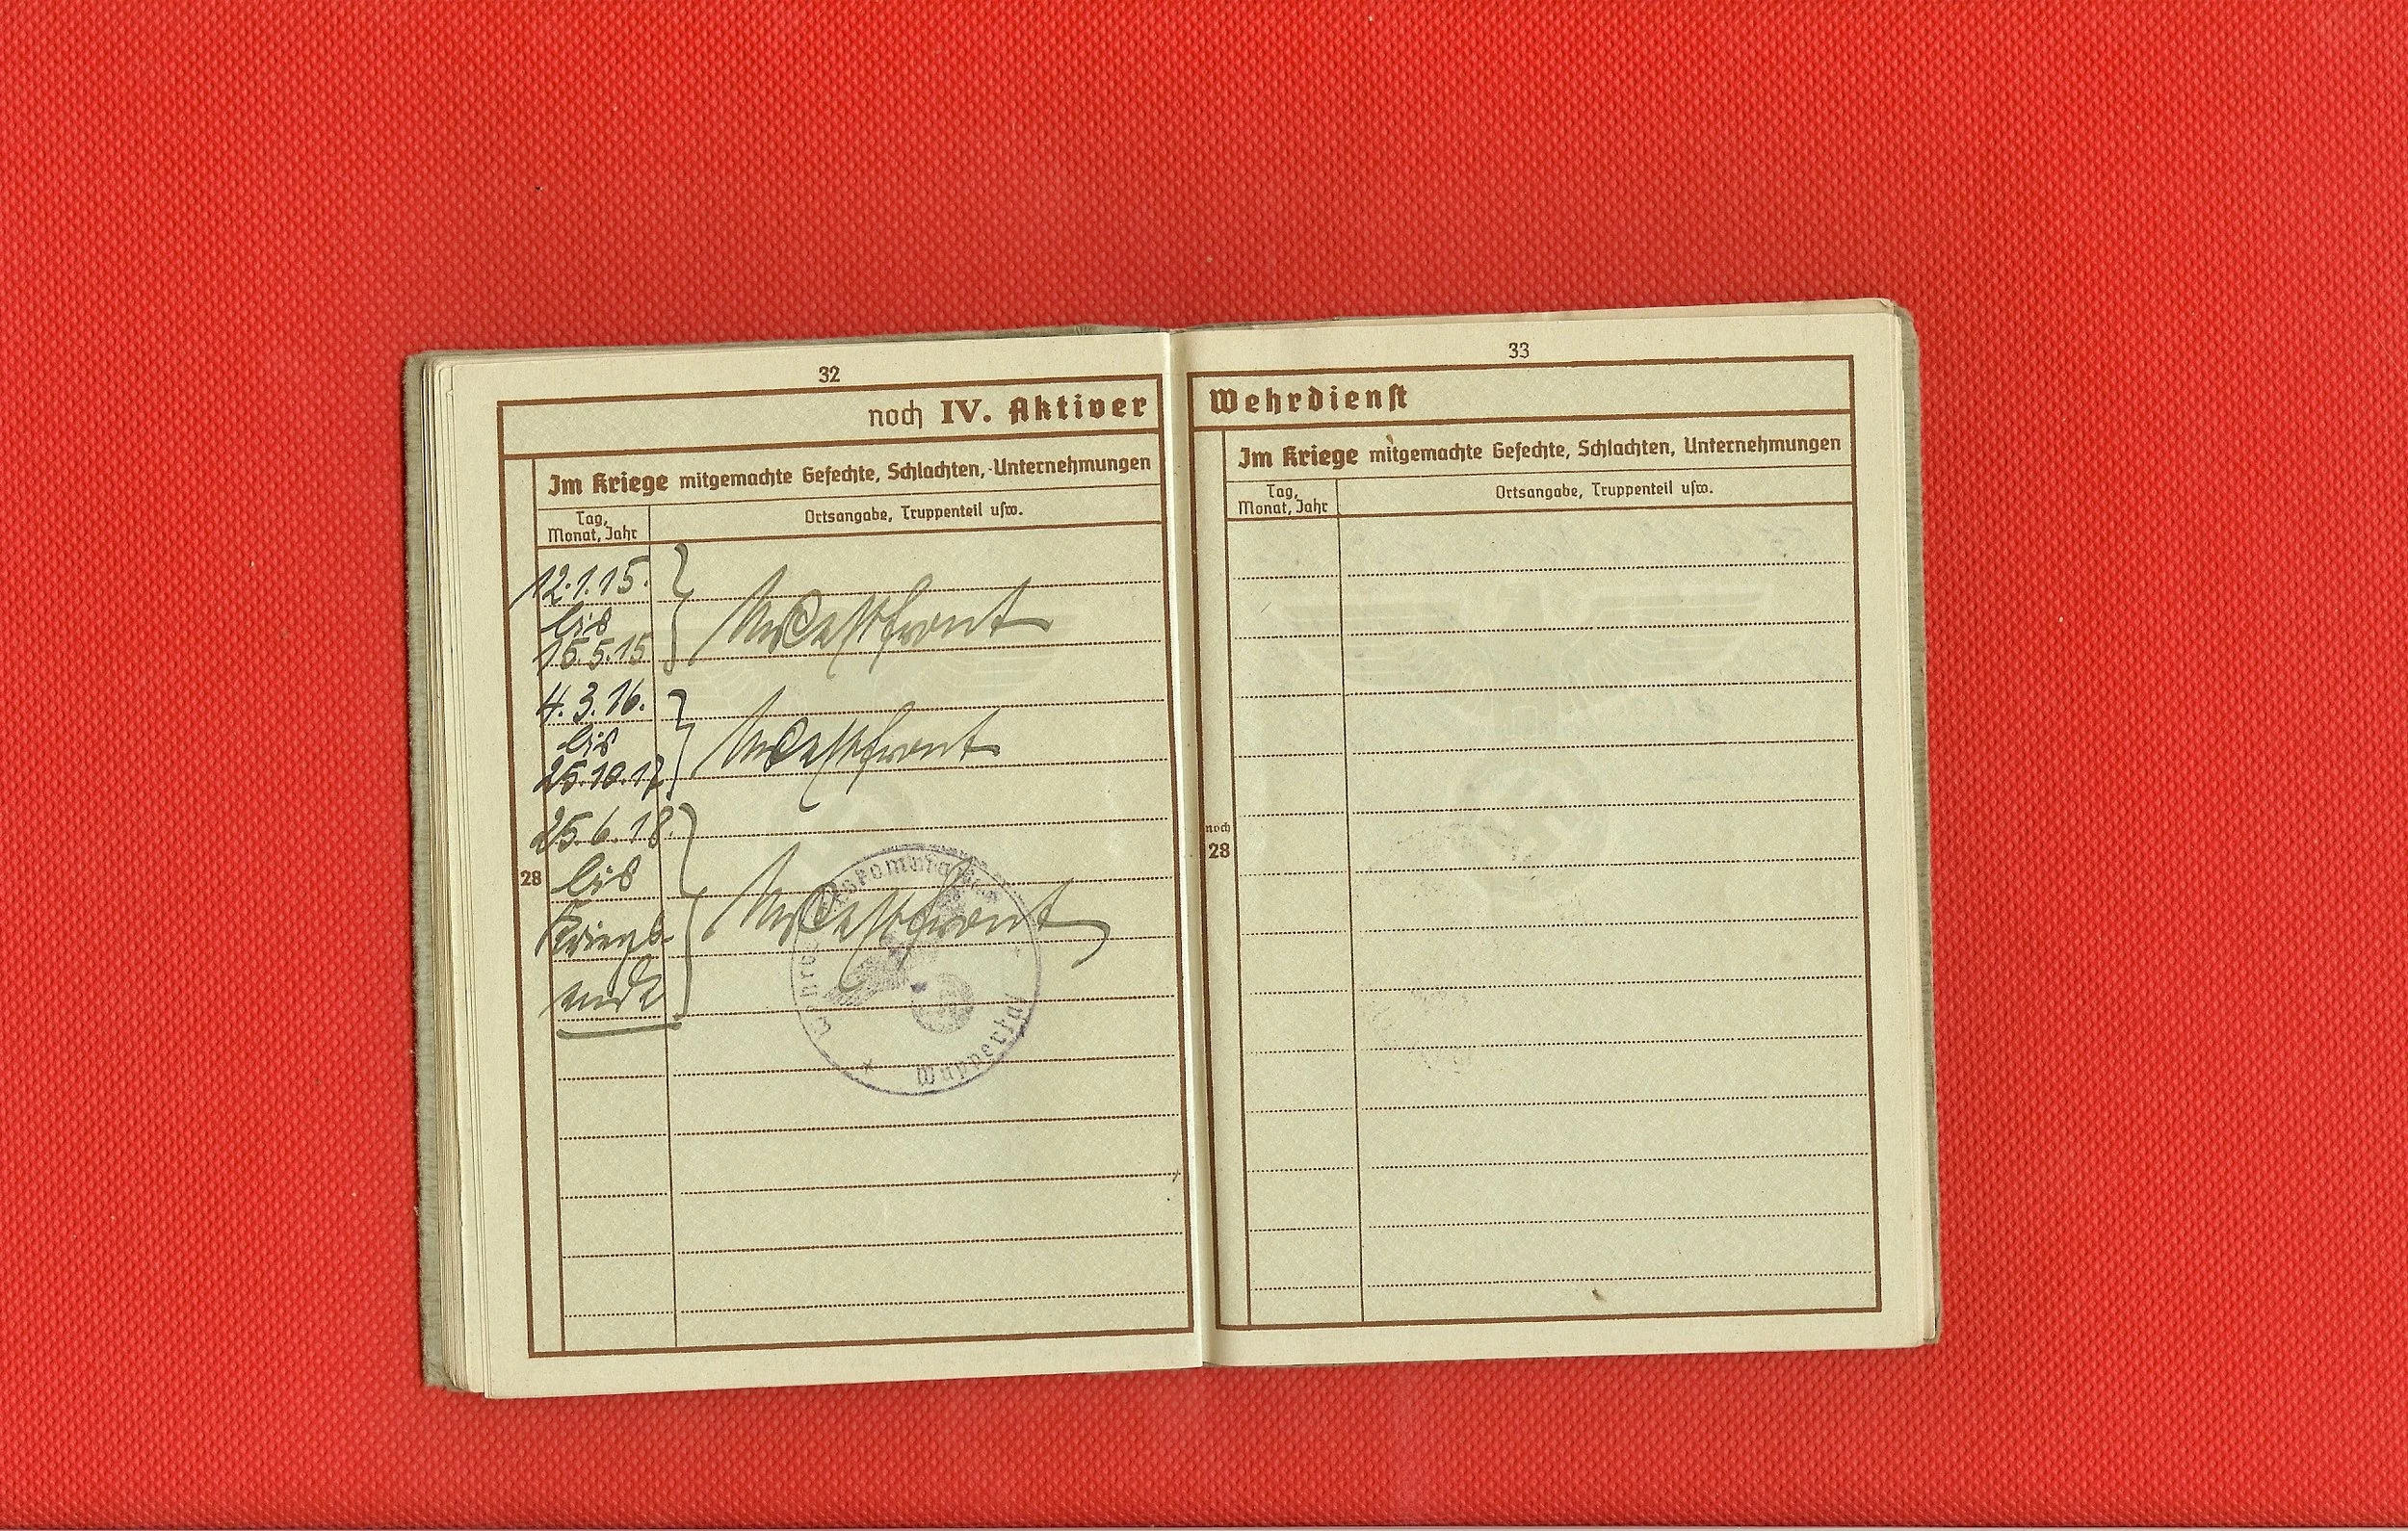 32
noch IV. Aktiver
Im Kriege mitgemachte Gefechte, Schlachten, Unternehmungen
Tag, Monat, Jahr
Ortsangabe, Truppenteil usw.
12.1.15.
bis
Westfront
4.3.16.
bis
25.10.17
Westfront
25.6.18.
bis
Kriegs-
ende
Westfront
28
Wuppertal
33
Wehrdienst
Im Kriege mitgemachte Gefechte, Schlachten, Unternehmungen
Tag, Monat, Jahr
Ortsangabe, Truppenteil usw.
noch
28